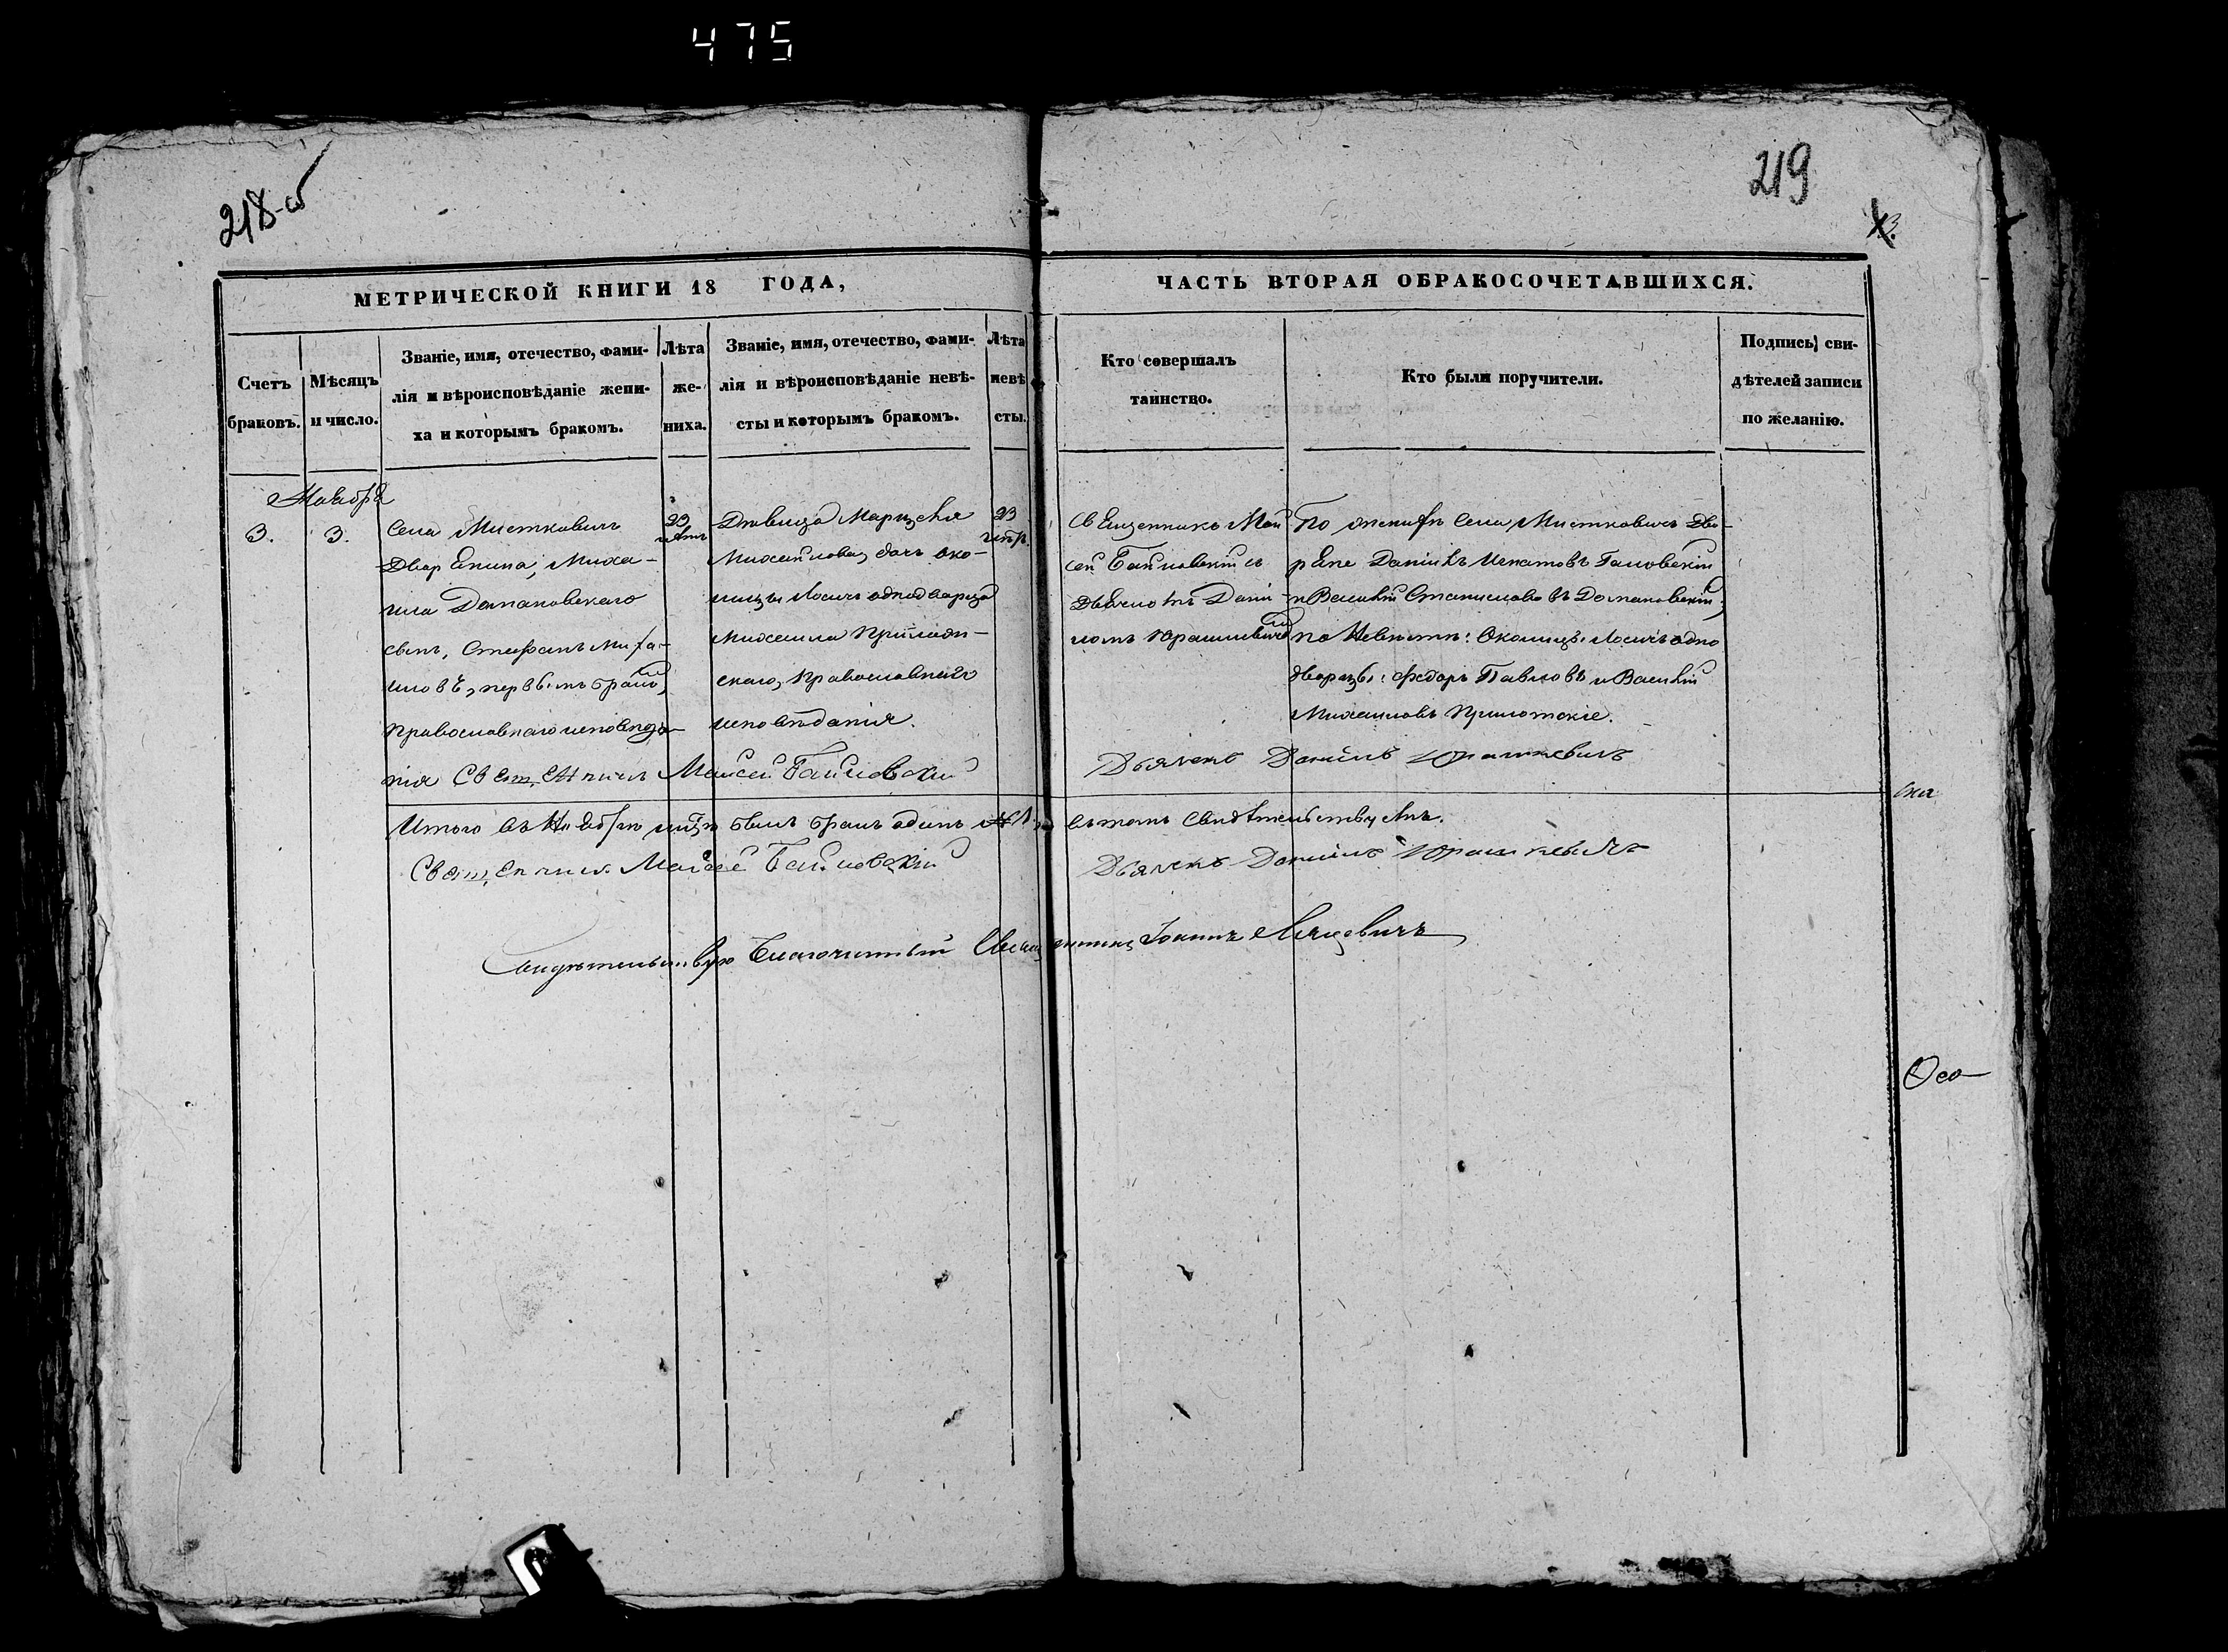 475
218-об
219
МЕТРИЧЕСКОЙ КНИГИ 18 ГОДА,
ЧАСТЬ ВТОРАЯ ОБРАКОСОЧЕТАВШИХСЯ.
Счетъ
браковъ.
Мѣсяцъ
и число.
Званіе, имя, отечество, фами-
лія и вѣроисповѣданіе жени-
ха и которымъ бракомъ.
Лѣта
же-
ниха.
Званіе, имя, отечество, фами-
лія и вѣроисповѣданіе невѣ-
сты и которымъ бракомъ.
Лѣта
невѣ
сты.
Кто совершалъ
таинство.
Кто были поручители.
Подпись сви-
дѣтелей записи
по желанію.
Ноября
3.
3.
Села Мистковичъ
Дворенина, Миха-
ила Домановскаго
сынъ, Стефанъ Миха-
иловъ, первымъ бракомъ,
православнаго исповѣда-
нія
23
Дѣвица
Михайлова, дочь око-
лицы Лосичъ однодворца
Михаила
скаго, Православнаго
исповѣданія.
23
Священникъ Мои
сей Байловскій съ
Дьячкомъ Дани-
ломъ Юрашкевичемъ
По женихѣ Села Мистковичъ Дво-
рене Даніилъ Игнатовъ
и Василій Станиславовъ Домановскій,
по Невѣстѣ: Околицы Лосичъ одно
дворцы: Федоръ Павловъ и Василій
Михаиловъ
Священникъ Моисей Байловскій
Дьячекъ Даніилъ Юрашкевичъ
Итого въ Ноябрѣ былъ бракъ одинъ
въ томъ свидѣтельствуемъ.
Священникъ Моисей Байловскій
Дьячекъ Даніилъ Юрашкевичъ
Свидѣтельствую Благочинный Священникъ Іоаннъ
Осо-